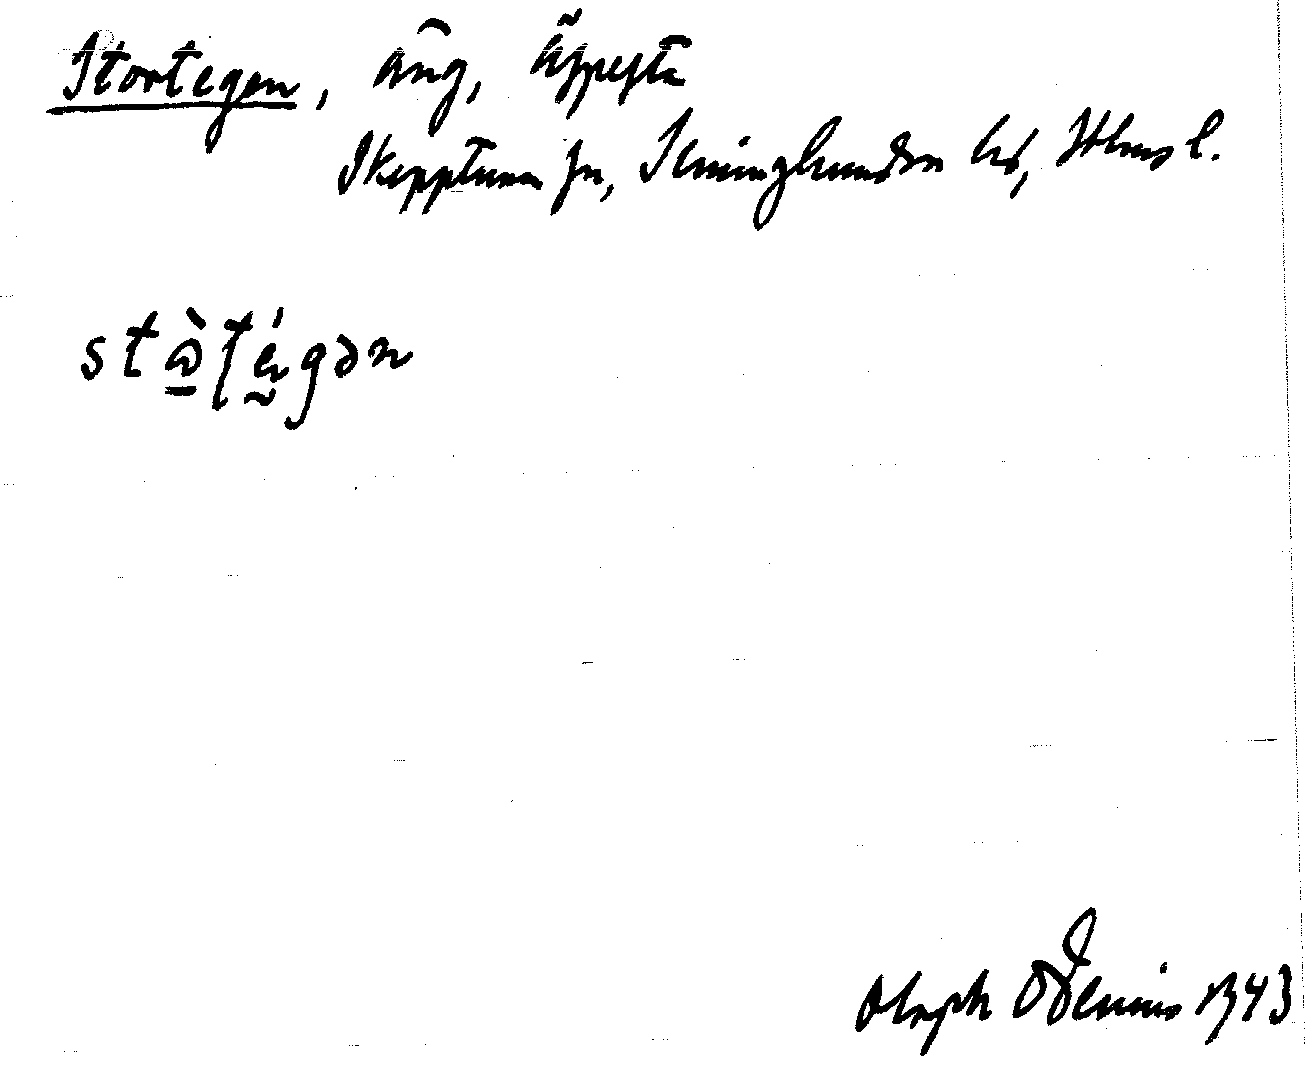 Stortegen, äng, Äspesta
Skepptuna sn, Seminghundra hd, Sthms l.
stɷ̀ʈégən
Oloph Odenius 1943